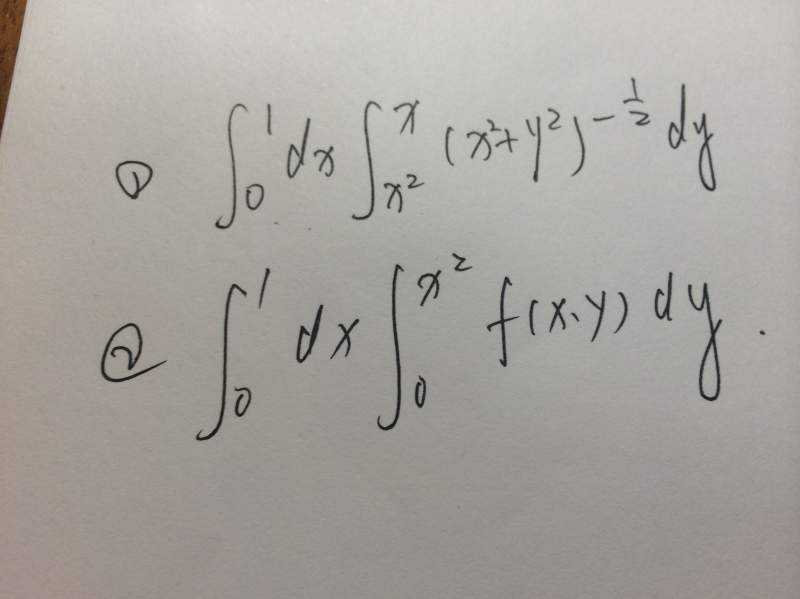 ① ∫₀¹ dx ∫_{x²}^{x} (x²+y²)^{-1/2} dy
② ∫₀¹ dx ∫₀^{x²} f(x、y) dy .